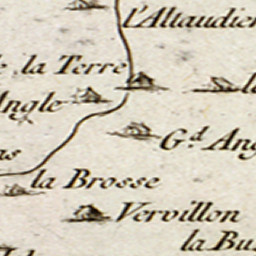 l'Altaudier
la Terre
Angle
G.d Ang
la Brosse
Vervillon
la Bu